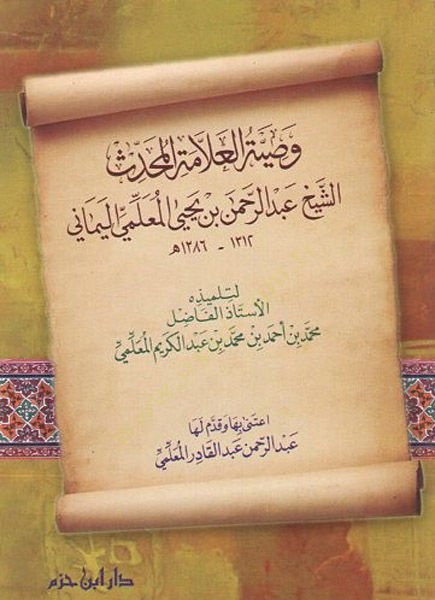 وصية العلامة المحدث
الشيخ عبد الرحمن بن يحيى المعلمي اليماني
١٣١٢ - ١٣٨٦هـ
لتلميذه
الأستاذ الفاضل
محمد بن أحمد بن محمد بن عبد الكريم المعلمي
اعتنى بها وقدم لها
عبد الرحمن عبد القادر المعلمي
دار ابن حزم